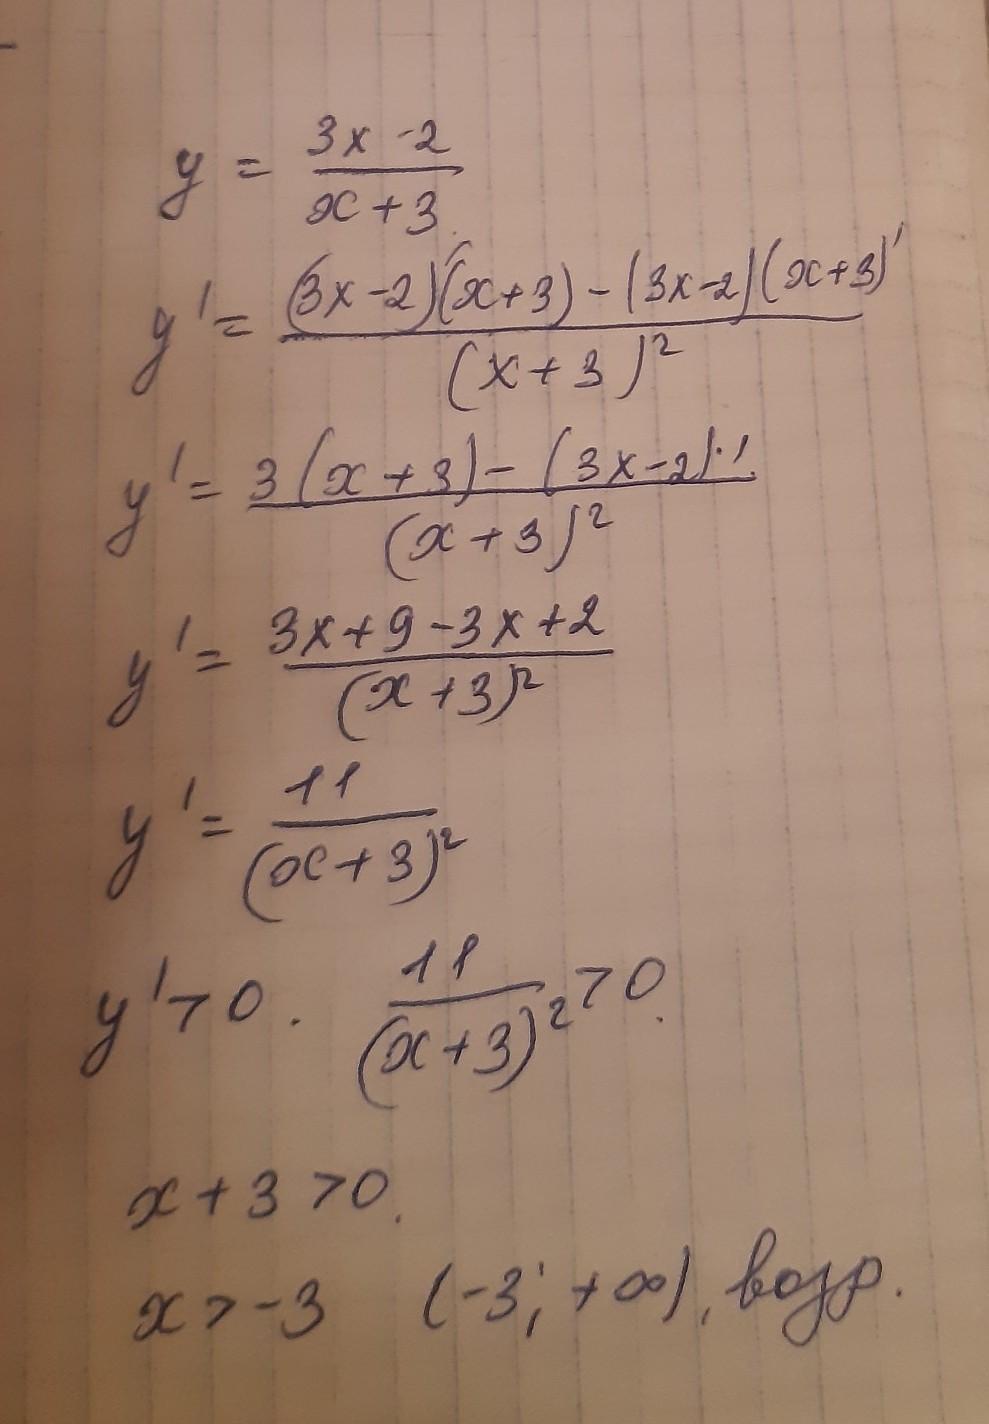 y = (3x - 2)/(x + 3)
y' = ((3x - 2)'(x + 3) - (3x - 2)(x + 3)')/(x + 3)²
y' = (3(x + 3) - (3x - 2)·1)/(x + 3)²
y' = (3x + 9 - 3x + 2)/(x + 3)²
y' = 11/(x + 3)²
y' > 0. 11/(x + 3)² > 0.
x + 3 > 0.
x > -3 (-3; +∞), возр.